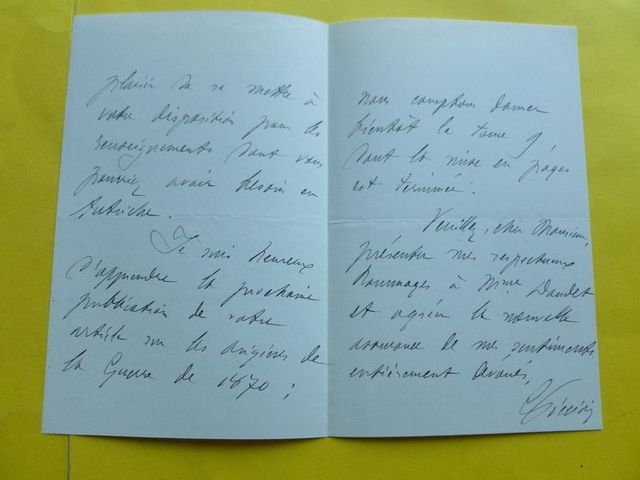 plaisir de se mettre à
votre disposition pour les
renseignements dont vous
pourriez avoir besoin en
Autriche.
Je suis heureux
d'apprendre la prochaine
publication de votre
article sur les origines de
la Guerre de 1870 ;
nous comptons donner
bientôt le tome 9
dont la mise en pages
est terminée.
Veuillez, cher Monsieur,
présenter mes respectueux
hommages à Mme Daudet
et agréer la nouvelle
assurance de mes sentiments
entièrement dévoués,